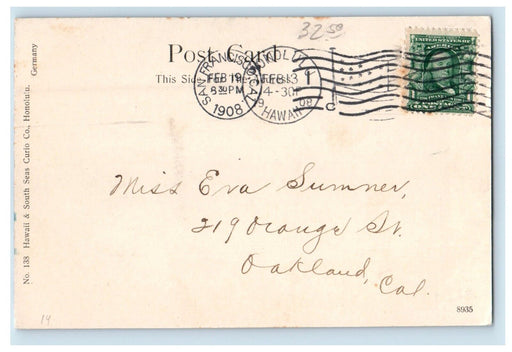 32.50
Post Card
This Side
SAN FRANCISCO, CAL.
FEB 19
8 30 PM
1908
HONOLULU
FEB 13
4-30P
1908
HAWAII
C
Miss Eva Sumner,
219 Orange St.
Oakland,
Cal.
No. 138 Hawaii & South Seas Curio Co., Honolulu. Germany
8935
14